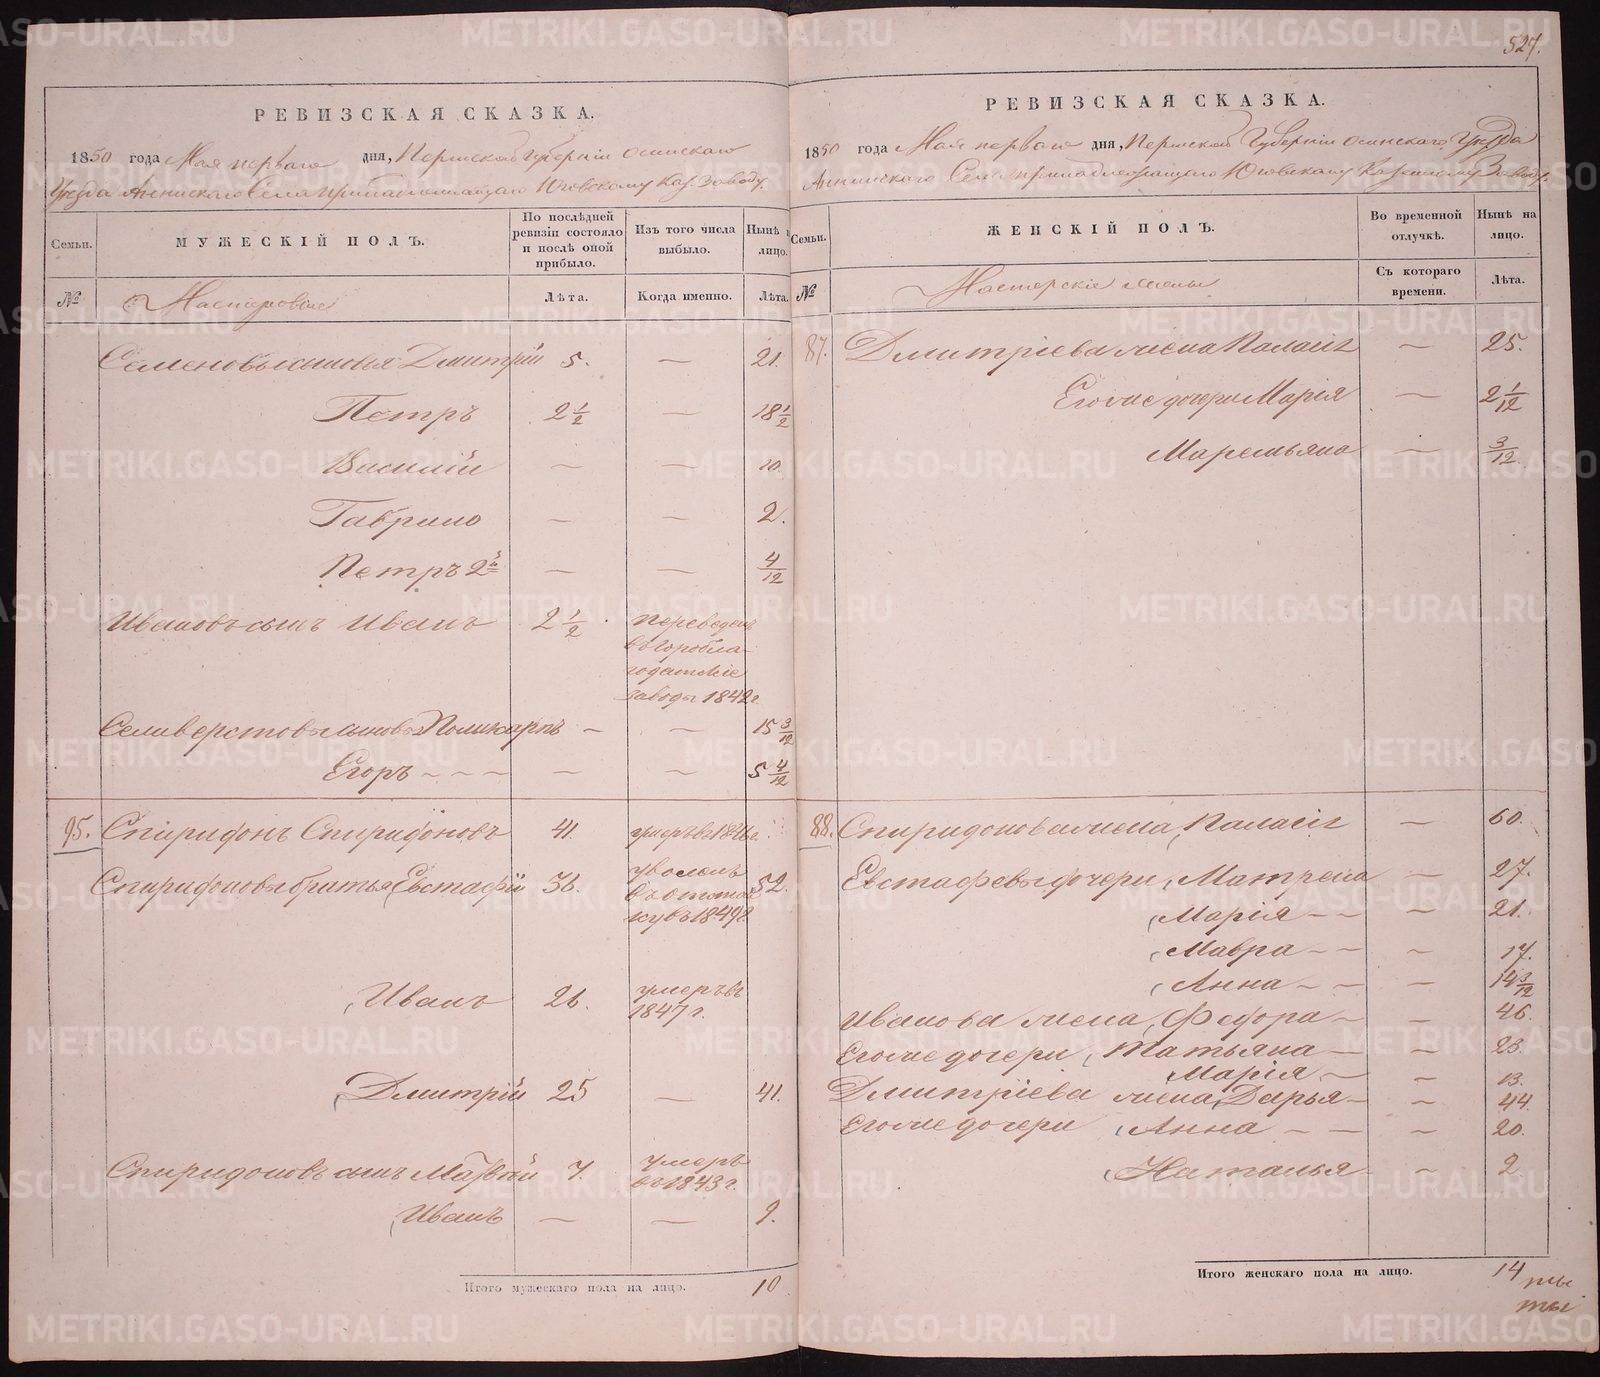 527.
РЕВИЗСКАЯ СКАЗКА.
1850 года Мая перваго дня, Пермской Губерніи Осинскаго
Уѣзда Аннинскаго Села принадлежащаго Юговскому Каз. Заводу.
Семьи.
МУЖЕСКІЙ ПОЛЪ.
По послѣдней ревизіи состояло и послѣ оной прибыло.
Изъ того числа выбыло.
Нынѣ на лицо.
№
Мастеровые
Лѣта.
Когда именно.
Лѣта.
Семеновы сыновья Дмитрій 5. — 21.
Петръ 2 1/2 — 18 1/2
Василій — — 10.
Гаврило — — 2.
Петръ 2й — — 4/12
Ивановъ сынъ Иванъ 2 1/2 . переведенъ
въ горобла-
годатскіе
заводы 1842 г
Селиверстовы сыновья Поликарпъ — — 15 3/12
Егоръ - - - — — 5 4/12
95. Спиридонъ Спиридоновъ 41. умеръ въ г.
Спиридоновы братья, Евстафій 36. уволенъ 52.
въ отстав
ку въ 1849 г
Иванъ 26. умеръ въ
1847 г.
Дмитрій 25 — 41.
Спиридоновъ сынъ Матвѣй 7. умеръ
въ 1843 г.
Иванъ — — 9.
Итого мужескаго пола на лицо. 10
РЕВИЗСКАЯ СКАЗКА.
1850 года Мая перваго дня, Пермской Губерніи Осинскаго Уѣзда
Аннинскаго Села принадлежащаго Юговскому Казенному Заводу.
Семьи.
ЖЕНСКІЙ ПОЛЪ.
Во временной отлучкѣ.
Нынѣ на лицо.
№
Мастерскіе жены
Съ котораго времени.
Лѣта.
87. Дмитріева жена Палагія — 25.
Его же дочери Марія — 2 1/12
Маремьяна — 3/12
88. Спиридонова жена, Палагія — 60.
Евстафьевы дочери, Матрена — 27.
Марія - - — 21.
Мавра - - — 17.
Анна - - — 14 3/12
Иванова жена, Федора - — 46.
Его же дочери, Татьяна - — 23.
Марія - — 13.
Дмитріева жена, Дарья - — 44.
Его же дочери, Анна - - — 20.
Наталья — 2
Итого женскаго пола на лицо. 14
METRIKI.GASO-URAL.RU